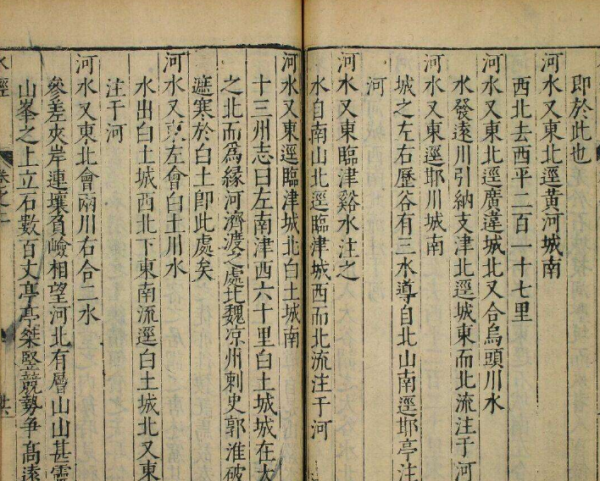 即於此也
河水又東北逕黃河城南
西北去西平二百一十七里
河水又東北逕廣違城北又合烏頭川水
水發遠川引納支津北逕城東而北流注于河
河水又東逕邯川城南
城之左右歷谷有三水導自北山南逕邯亭注
河
河水又東臨津谿水注之
水自南山北逕臨津城西而北流注于河
河水又東逕臨津城北白土城南
十三州志曰左南津西六十里白土城城在大
之北而爲緣河濟渡之處北魏凉州刺史郭淮破
遮寒於白土卽此處矣
河水又東左會白土川水
水出白土城西北下東南流逕白土城北又東
注于河
河水又東北會兩川右合二水
參差夾岸連壤負嶮相望河北有層山山甚靈
山峯之上立石數百丈亭亭桀竪競勢爭高遠
水經
卷之二